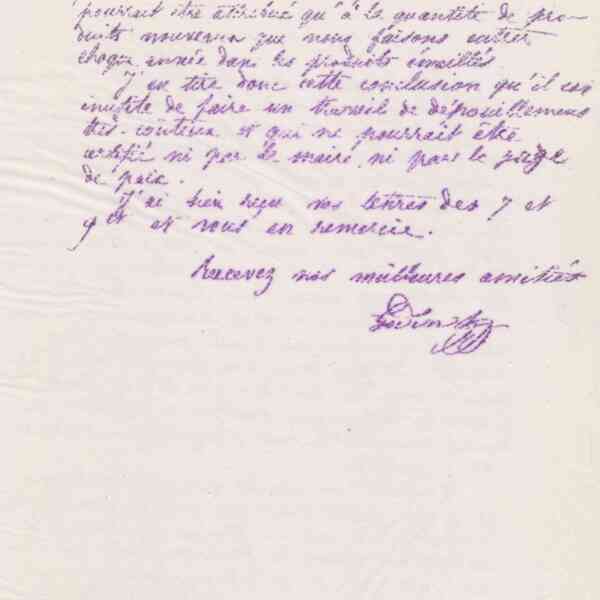 pourrait être attribué qu'à la quantité de pro-
duits nouveaux que nous faisons entrer
chaque année dans les produits émaillés.
J'en tire donc cette conclusion qu'il est
inutile de faire un travail de dépouillement
très-coûteux et qui ne pourrait être
certifié ni par le maire, ni par le juge
de paix.
J'ai bien reçu vos lettres des 7 et
9 Ct et vous en remercie.
Recevez nos meilleures amitiés
Godin